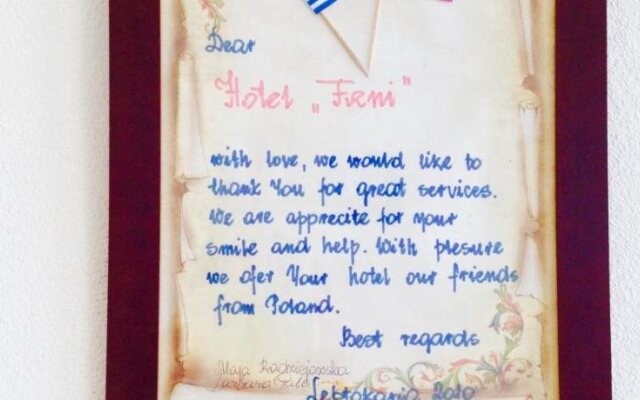 Dear
Hotel „Fæni"
with love, we would like to
thank You for great services.
We are apprecite for your
smile and help. With plesure
we ofer Your hotel our friends
from Poland.
Best regards
Maja Radziejowska
Barbara
Leptokaria 2010